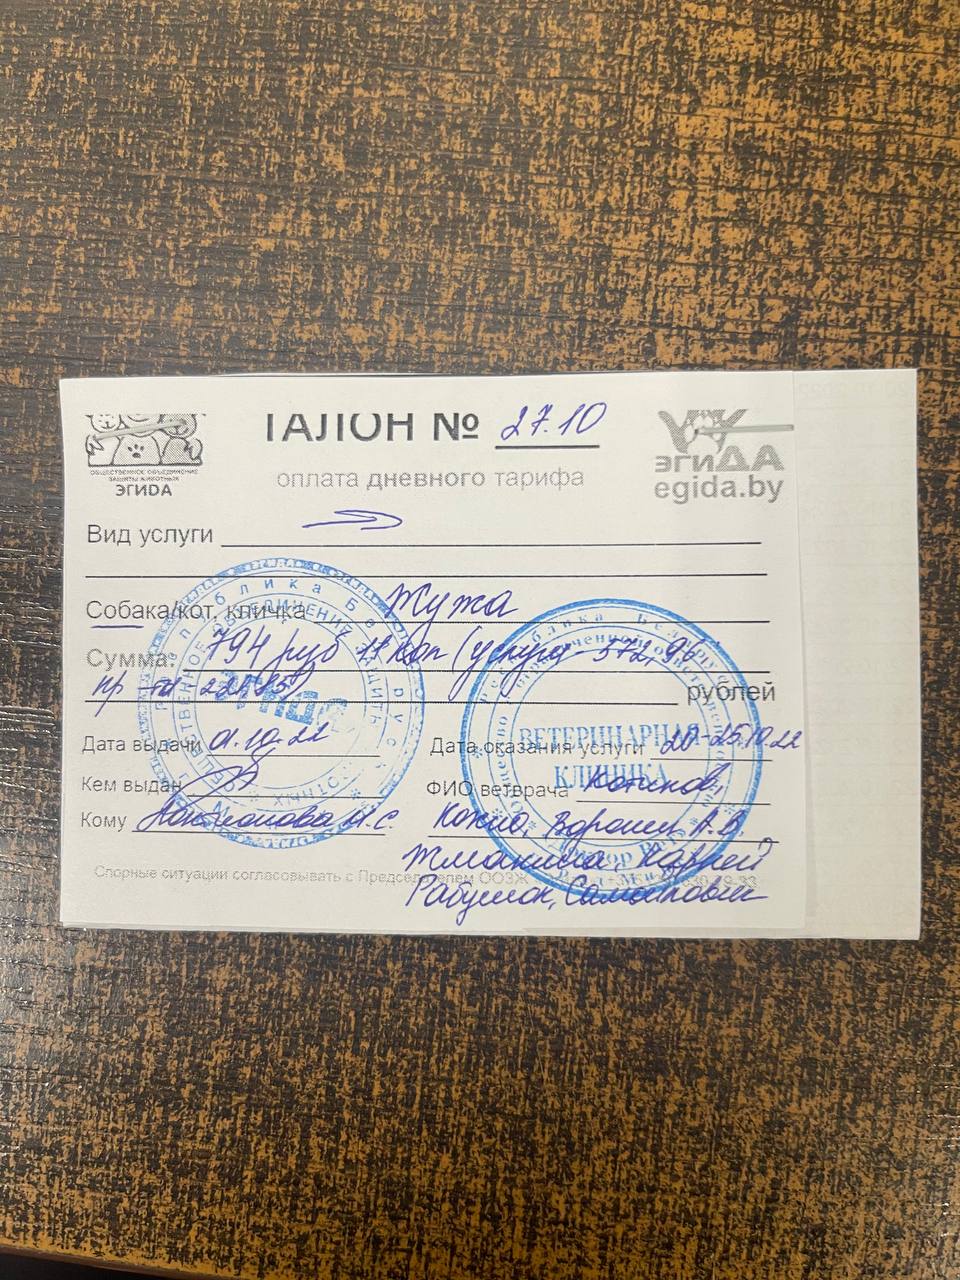 ТАЛОН № 27.10
ОБЩЕСТВЕННОЕ ОБЪЕДИНЕНИЕ
ЗАЩИТЫ ЖИВОТНЫХ
ЭГИДА
оплата дневного тарифа
эгиДА
egida.by
Вид услуги
Собака/кот, кличка Жужа
Сумма: 794 руб 11 коп (услуга - 572,96
221,85) рублей
Дата выдачи 01.10.22 Дата оказания услуги 20-25.10.22
Кем выдан ФИО ветврача Котинов,
Кому Кожно, Ворошень А.В.
Жмакина, Каррей
Рабушок, Самойлович
Спорные ситуации согласовывать с Председателем ООЗЖ
Республика Беларусь
ОБЩЕСТВЕННОЕ ОБЪЕДИНЕНИЕ ЗАЩИТЫ
ЭГИДА
ВЕТЕРИНАРНАЯ
КЛИНИКА